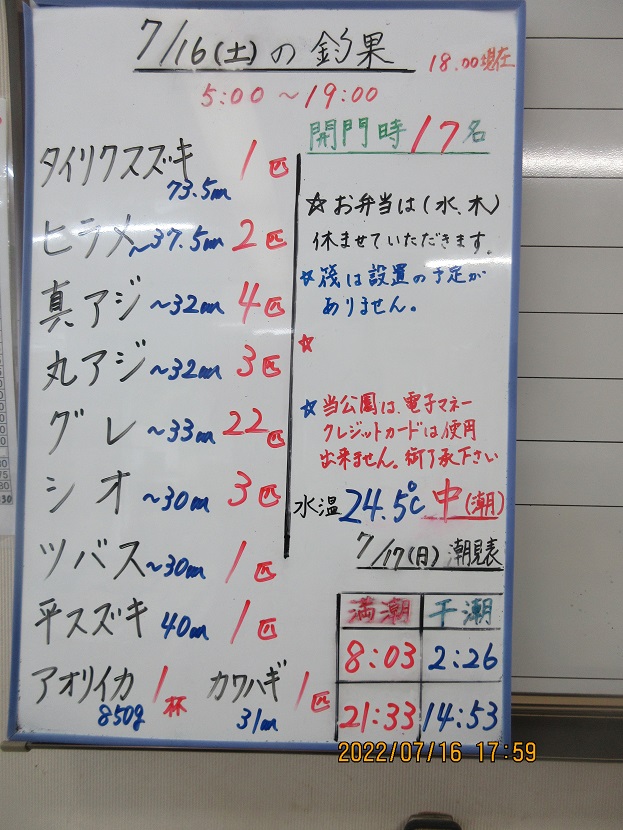 7/16(土)の釣果
18.00現在
5:00～19:00
開門時17名
タイリクスズキ 1匹
73.5cm
ヒラメ ~37.5cm 2匹
真アジ ~32cm 4匹
丸アジ ~32cm 3匹
グレ ~33cm 22匹
シオ ~30cm 3匹
ツバス ~30cm 1匹
平スズキ 40cm 1匹
アオリイカ 1杯
850g
カワハギ 1匹
31cm
☆お弁当は(水、木)
休ませていただきます。
☆筏は設置の予定が
ありません。
☆
☆当公園は、電子マネー
クレジットカードは使用
出来ません。御了承下さい
水温 24.5℃ 中(潮)
7/17(日) 潮見表
満潮 干潮
8:03 2:26
21:33 14:53
2022/07/16 17:59